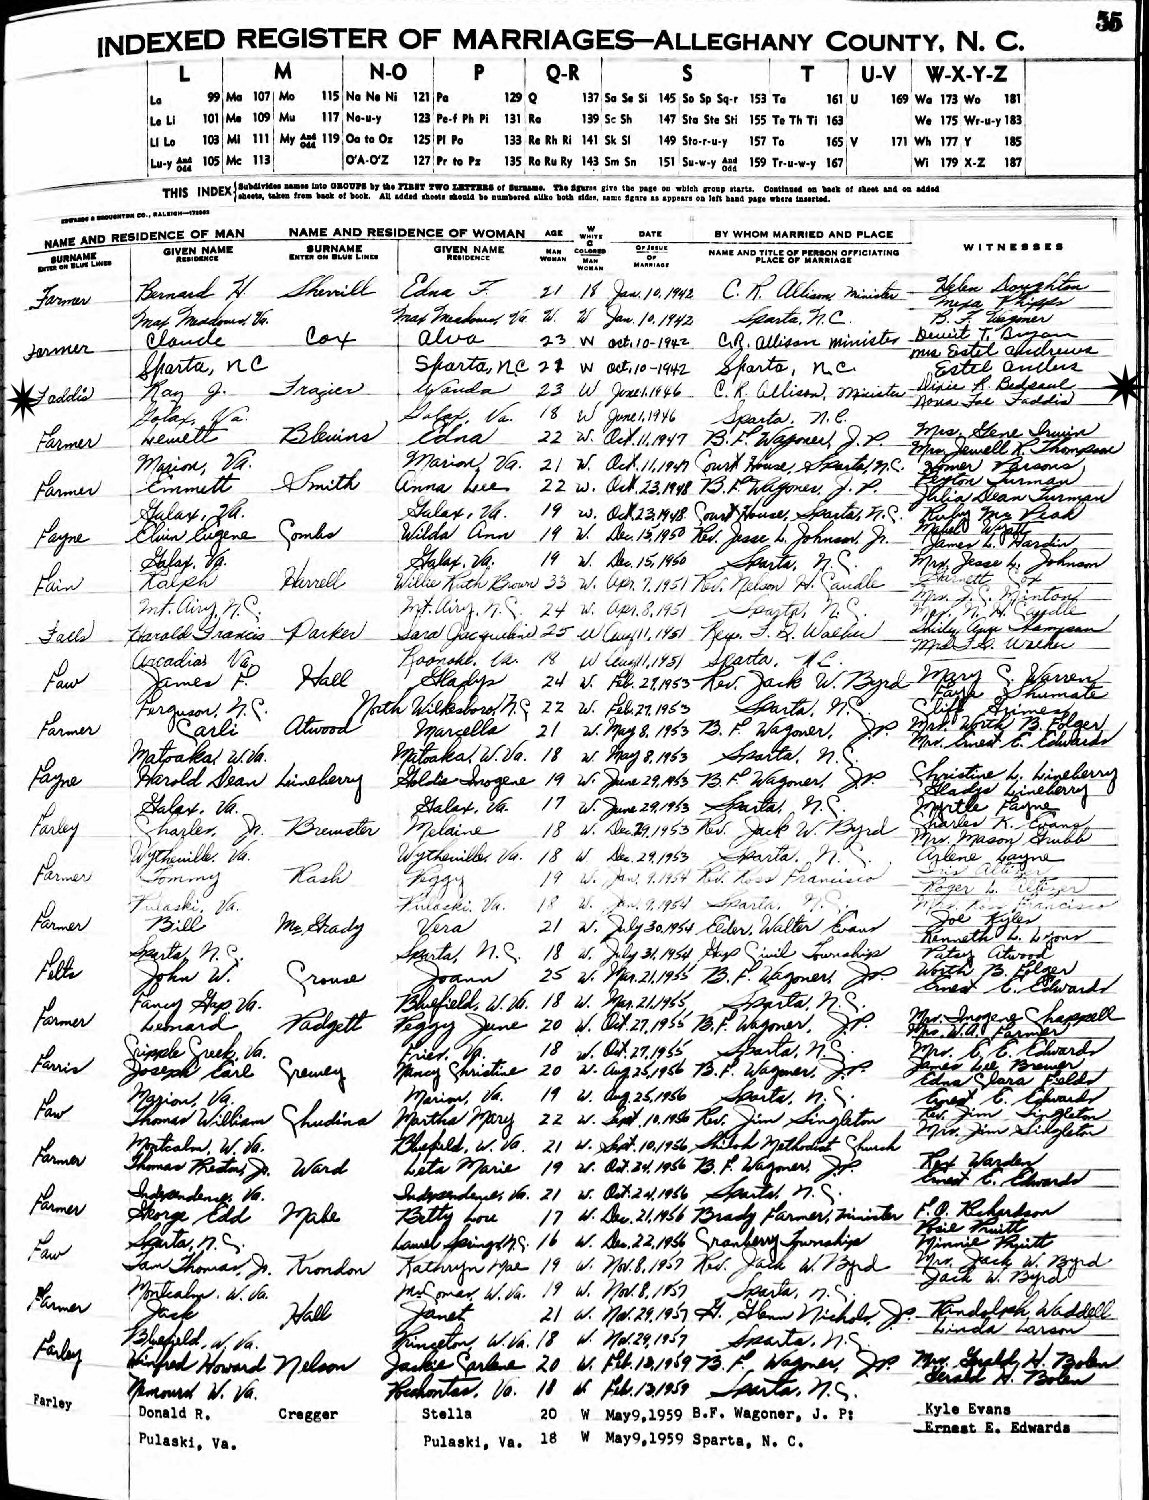 35
INDEXED REGISTER OF MARRIAGES—ALLEGHANY COUNTY, N. C.
L M N-O P Q-R S T U-V W-X-Y-Z
La 99 Ma 107 Mo 115 Na Ne Ni 121 Pa 129 Q 137 Sa Se Si 145 So Sp Sq-r 153 Ta 161 U 169 Wa 173 Wo 181
Le Li 101 Me 109 Mu 117 No-u-y 123 Pe-f Ph Pi 131 Ra 139 Sc Sh 147 Sta Ste Sti 155 Te Th Ti 163 We 175 Wr-u-y 183
Ll Lo 103 Mi 111 My And Odd 119 Oa to Oz 125 Pl Po 133 Re Rh Ri 141 Sk Sl 149 Sto-r-u-y 157 To 165 V 171 Wh 177 Y 185
Lu-y And Odd 105 Mc 113 O'A-O'Z 127 Pr to Pz 135 Ro Ru Ry 143 Sm Sn 151 Su-w-y And Odd 159 Tr-u-w-y 167 Wi 179 X-Z 187
THIS INDEX Subdivides names into GROUPS by the FIRST TWO LETTERS of Surname. The figures give the page on which group starts. Continued on back of sheet and on added
sheets, taken from back of book. All added sheets should be numbered alike both sides, same figure as appears on left hand page where inserted.
EDWARDS & BROUGHTON CO., RALEIGH
NAME AND RESIDENCE OF MAN NAME AND RESIDENCE OF WOMAN AGE W WHITE C COLORED DATE BY WHOM MARRIED AND PLACE WITNESSES
SURNAME ENTER ON BLUE LINES GIVEN NAME RESIDENCE SURNAME ENTER ON BLUE LINES GIVEN NAME RESIDENCE MAN WOMAN MAN WOMAN OF ISSUE OF MARRIAGE NAME AND TITLE OF PERSON OFFICIATING PLACE OF MARRIAGE
Farmer Bernard H Sherrill Edna F. 21 18 Jan. 10, 1942 C. R. Allison, Minister Helen Doughton
Mexa Phipps
Max Meadows, Va. Max Meadows, Va. W. W Jan. 10, 1942 Sparta, N.C. B. F. Wagoner
Farmer Claude Cox Alva 23 W Oct. 10-1942 C.R. Allison Minister Dewitt T. Bryan
Mrs Estel Andrews
Sparta, NC Sparta, NC 21 W Oct. 10-1942 Sparta, N.C. Estel Anders
Faddis Ray J. Frazier Wanda 23 W June 1, 1946 C. R. Allison, Minister Dixie R. Bedsaul
Nova Fae Faddis
Galax, Va. Galax, Va. 18 W June 1, 1946 Sparta, N.C.
Farmer Jewett Blevins Edna 22 W. Oct. 11, 1947 B. F. Wagoner, J. P. Mrs. Gene Irwin
Mrs. Jewell R. Thompson
Marion, Va. Marion, Va. 21 W. Oct. 11, 1947 Court House, Sparta, N.C. Homer Parsons
Farmer Emmett Smith Anna Lee 22 W. Oct. 23, 1948 B. F. Wagoner, J. P. Peyton Turman
Julia Dean Turman
Galax, Va. Galax, Va. 19 W. Oct. 23, 1948 Court House, Sparta, N.C. Ruby Mc
Payne Elvin Eugene Combs Wilda Ann 19 W. Dec. 15, 1950 Rev. Jesse L. Johnson, Jr. Mabel Wyatt
James L. Hardin
Galax, Va. Galax, Va. 19 W. Dec. 15, 1950 Sparta, N.C. Mrs. Jesse L. Johnson
Fain Ralph Harrell Willie Ruth Brown 33 W. Apr. 7, 1951 Rev. Nelson H. Caudle Garnett Cox
Mrs. J. C. Minton
Mt. Airy, N.C. Mt. Airy, N.C. 24 W. Apr. 8, 1951 Sparta, N.C. Mrs. N. H. Caudle
Falls Harold Francis Parker Sara Jacqueline 25 W Aug 11, 1951 Rev. F. R. Walker Shirley Ann Thompson
Mrs F. R. Walker
Arcadia, Va. Roanoke, Va. 18 W Aug 11, 1951 Sparta, N.C.
Faw James F. Hall Gladys 24 W. Feb. 27, 1953 Rev. Jack W. Byrd Mary C. Warren
Faye Shumate
Ferguson, N.C. North Wilkesboro, N.C. 22 W. Feb. 27, 1953 Sparta, N.C. Cliff Grimes
Farmer Carli Atwood Marcella 21 W. May 8, 1953 B. F. Wagoner, J.P. Mrs. Worth B. Folger
Mrs. Ernest E. Edwards
Matoaka, W.Va. Matoaka, W.Va. 18 W. May 8, 1953 Sparta, N.C.
Payne Harold Dean Lineberry Goldie Imogene 19 W. June 29, 1953 B. F. Wagoner, J.P. Christine L. Lineberry
Gladys Lineberry
Galax, Va. Galax, Va. 17 W. June 29, 1953 Sparta, N.C. Myrtle Payne
Farley Charles, Jr. Brewster Melaine 18 W. Dec. 29, 1953 Rev. Jack W. Byrd Charles K. Evans
Mrs. Mason Grubb
Wytheville, Va. Wytheville, Va. 18 W. Dec. 29, 1953 Sparta, N.C. Arlene Layne
Farmer Tommy Rash Peggy 19 W. Jan. 9, 1954 Rev. Ross Francisco Iris Altizer
Roger L. Altizer
Pulaski, Va. Pulaski, Va. 18 W. Jan. 9, 1954 Sparta, N.C. Mrs. Ross Francisco
Farmer Bill McGrady Vera 21 W. July 30, 1954 Elder, Walter Evans Joe Kyles
Kenneth L. Lyons
Sparta, N.C. Sparta, N.C. 18 W. July 31, 1954 Gap Civil Township Patsy Atwood
Felts John W. Crouse Joann 25 W. Mar. 21, 1955 B. F. Wagoner, J.P. Worth B. Folger
Ernest E. Edwards
Fancy Gap, Va. Bluefield, W.Va. 18 W. Mar. 21, 1955 Sparta, N.C.
Farmer Leonard Padgett Peggy June 20 W. Oct. 27, 1955 B. F. Wagoner, J.P. Mrs. Imogene Chappell
Mrs. W.A. Farmer
Cripple Creek, Va. Fries, Va. 18 W. Oct. 27, 1955 Sparta, N.C. Mrs. E. E. Edwards
Farris Joseph Earl Grewey Nancy Christine 20 W. Aug 25, 1956 B. F. Wagoner, J.P. James Lee Brewer
Edna Clara Fields
Marion, Va. Marion, Va. 19 W. Aug. 25, 1956 Sparta, N.C. Ernest E. Edwards
Faw Thomas William Chudina Martha Mary 22 W. Sept. 10, 1956 Rev. Jim Singleton Rev. Jim Singleton
Mrs. Jim Singleton
Montcalm, W.Va. Bluefield, W. Va. 21 W. Sept. 10, 1956 Shiloh Methodist Church
Farmer Thomas Preston, Jr. Ward Leta Marie 19 W. Oct. 24, 1956 B. F. Wagoner, J.P. Rex Warden
Ernest E. Edwards
Independence, Va. Independence, Va. 21 W. Oct. 24, 1956 Sparta, N.C.
Farmer George Edd Mabe Betty Lou 17 W. Dec. 21, 1956 Brady Farmer, Minister F. O. Richardson
Rosie Pruitt
Sparta, N.C. Laurel Springs, N.C. 16 W. Dec. 22, 1956 Cranberry Township Minnie Pruitt
Faw Ian Thomas, Jr. Krondon Kathryn Mae 19 W. Nov. 8, 1957 Rev. Jack W. Byrd Mrs. Jack W. Byrd
Jack W. Byrd
Montcalm, W.Va. McComas, W.Va. 19 W. Nov 8, 1957 Sparta, N.C.
Farmer Jack Hall Janet 21 W. Nov. 29, 1957 G. Glenn Nichols, J.P. Randolph Waddell
Linda Larson
Bluefield, W. Va. Princeton, W.Va. 18 W. Nov. 29, 1957 Sparta, N.C.
Farley Winfred Howard Nelson Jackie Carlene 20 W. Feb. 13, 1959 B. F. Wagoner, J.P. Mrs. Gerald H. Bolen
Gerald H. Bolen
W. Va. Pocahontas, Va. 18 W. Feb. 13, 1959 Sparta, N.C.
Farley Donald R. Cregger Stella 20 W May9,1959 B.F. Wagoner, J. P: Kyle Evans
Ernest E. Edwards
Pulaski, Va. Pulaski, Va. 18 W May9,1959 Sparta, N. C.